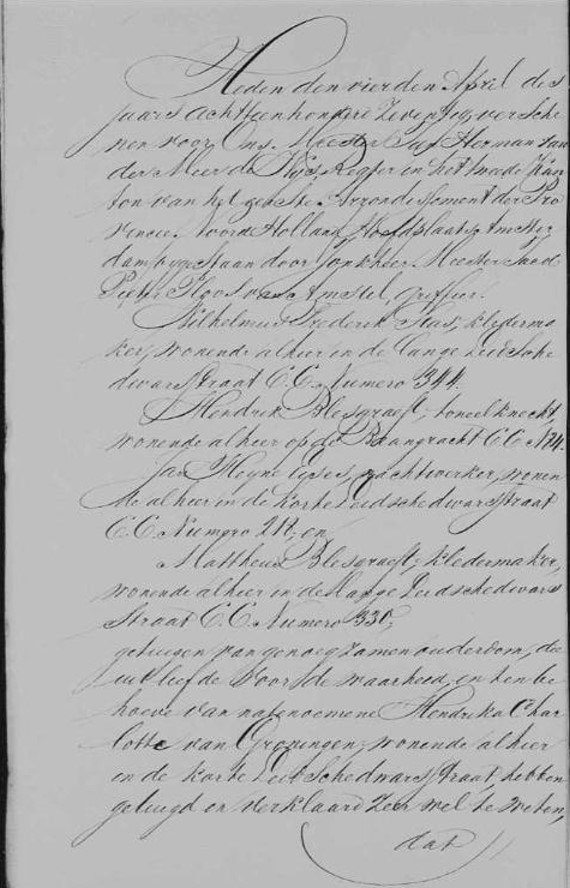 Heden den vierden April des
jaars achttienhonderd zeventig, versche
nen voor Ons, Meester Jan Herman van
der Meer de Regter in het tweede Kan
ton van het Arrondissement der Pro
vincie Noord Holland Hoofdplaats Amster
dam bijgestaan door Jonkheer Meester Jacob
Pieter Ploos van Amstel, griffier.
Wilhelmus Frederik Stas, kledermа
ker, wonende alhier in de Lange Leidsche
dwarsstraat C.C. Numero 344.
Hendrik Blesgraeft, toneelknecht,
wonende alhier op de Baangracht C.C. N 24.
Jan wonen
de alhier in de Korte Leidschedwarsstraat
C.C. Numero 211, en
Mattheus Blesgraeft, kledermaker,
wonende alhier in de Lange Leidschedwars
Straat C.C. Numero 330,
getuigen van genoegzamen ouderdom, die
uit liefde voor de waarheid, en ten be
hoeve van natenoemene Hendrika Char
lotte van Groningen, wonende alhier
in de Korte Leidschedwarsstraat, hebben
getuigd en verklaard zeer wel te weten,
dat